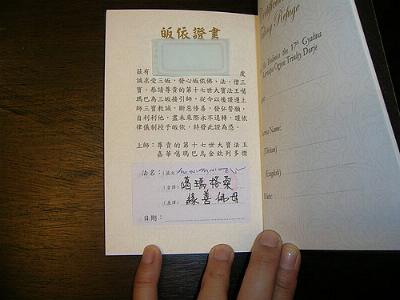 皈依證書
茲有 虔
誠名受三皈,發心皈依佛、法、僧三
寶。恭請尊貴的第十七世大寶法王噶
瑪巴為三皈接引師,從今以後謹遵上
師三寶教誡,斷惡修善,發任誓願,
自利利他,盡未來際永不退轉。謹依
律儀制授予皈依,特發此證為憑。
上師:尊貴的第十七世大寶法王
嘉華噶瑪巴烏金欽列多傑
法名:
(音譯) 噶瑪格桑
(意譯) 緣善佛母
日期:
Refuge
the 17th Gyalwa
Ogyen Trinley Dorje
Name:
(Tibetan)
(English)
Date